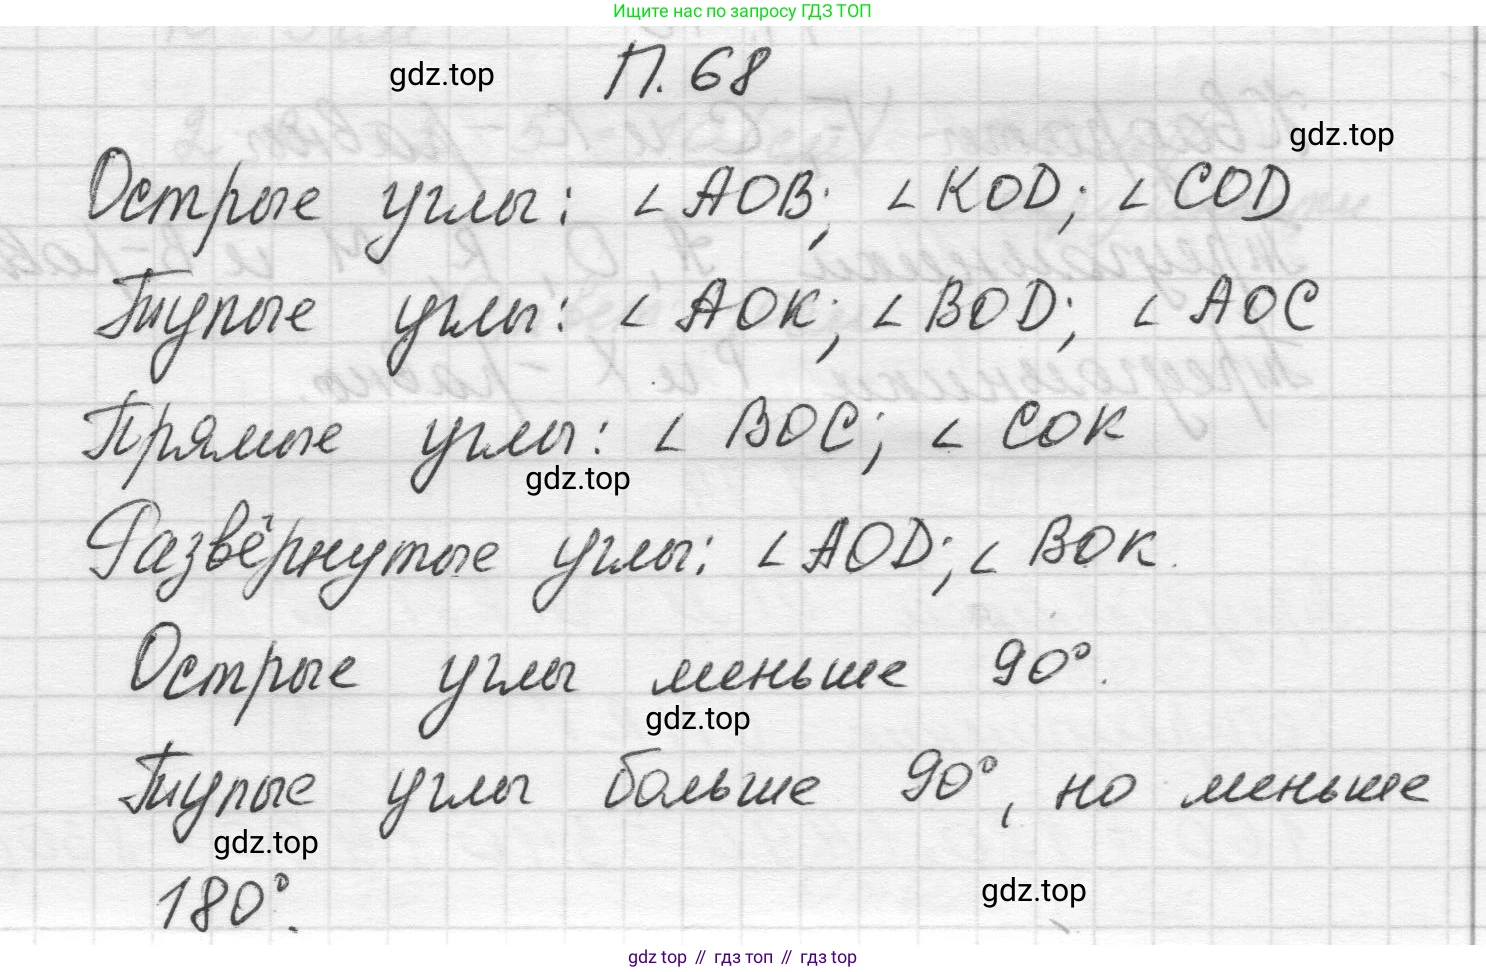 Ищите нас по запросу ГДЗ ТОП
П. 68
gdz.top
gdz.top
Острые углы: ∠AOB; ∠KOD; ∠COD
Тупые углы: ∠AOK; ∠BOD; ∠AOC
Прямые углы: ∠BOC; ∠COK
gdz.top
Развёрнутые углы: ∠AOD; ∠BOK.
Острые углы меньше 90°.
gdz.top
Тупые углы больше 90°, но меньше
gdz.top
180°.
gdz.top
gdz top // гдз топ // гдз top